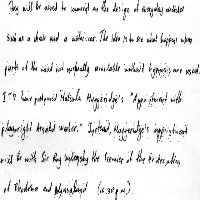 They will be asked to comment on the design of everyday articles
such as a chair and a motor-car. The idea is to see what happens when
parts of the mind not normally available without hypnosis are used.
I T V have postponed Malcolm Muggeridge's "Appointment with
playwright Arnold Wesker." Instead, Muggeridge's appointment
will be with Sir Roy Welensky, the Premier of the Federation
of Rhodesia and Nyasaland (10.35 p.m.).